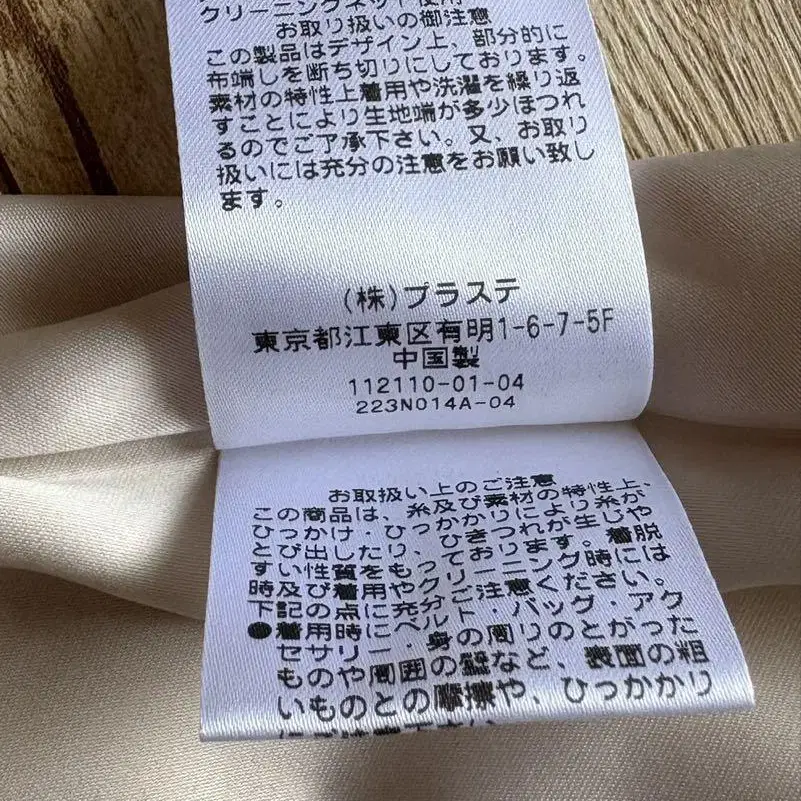 クリーニングネット使用
お取り扱いの御注意
この製品はデザイン上、部分的に
布端しを断ち切りにしております。
素材の特性上着用や洗濯を繰り返
すことにより生地端が多少ほつれ
るのでご了承下さい。又、お取り
扱いには充分の注意をお願い致し
ます。
(株)プラステ
東京都江東区有明1-6-7-5F
中国製
112110-01-04
223N014A-04
お取扱い上のご注意
この商品は、糸及び素材の特性上、
ひっかけ・ひっかかりにより糸が
とび出したり、ひきつれが生じや
すい性質をもっております。着脱
時及び着用やクリーニング時には
下記の点に充分ご注意ください。
●着用時にベルト・バッグ・アク
セサリー・身の周りのとがった
ものや周囲の壁など、表面の粗
いものとの摩擦や、ひっかかり